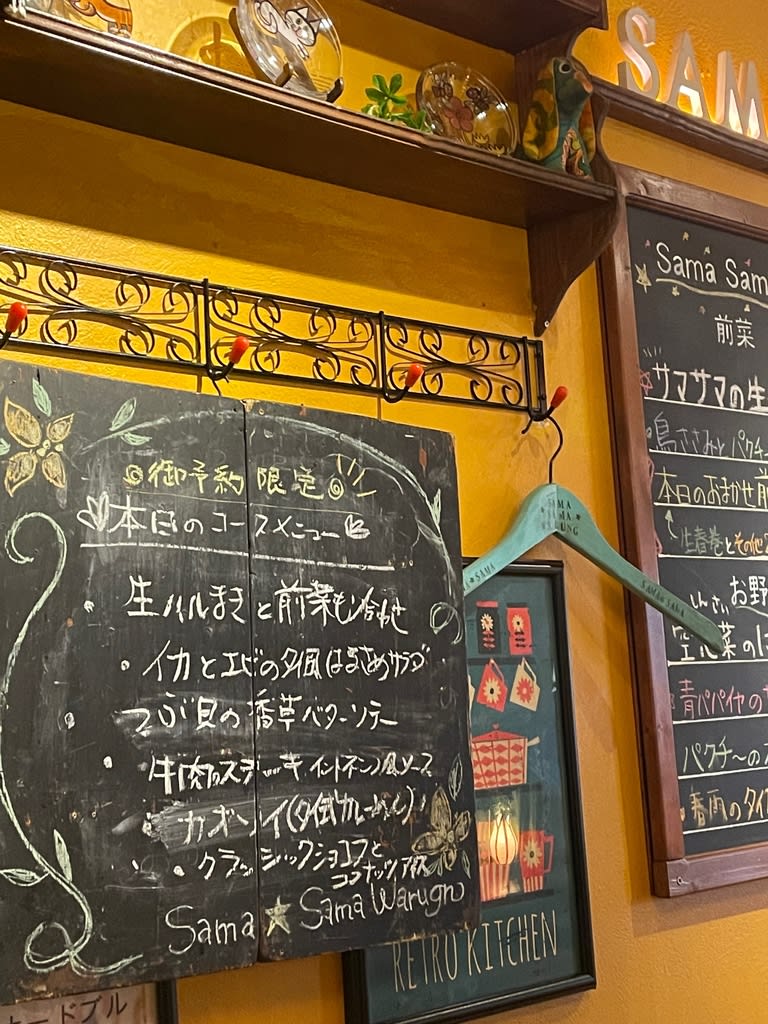 御予約限定
本日のコースメニュー
・生ハルまきと前菜もり合わせ
・イカとエビのタイ風はるさめサラダ
つぶ貝の香草バターソテー
・牛肉のステーキ インドネシア風ソース
・カオソーイ(タイ式カレーめん)
・クラシックショコラと
ココナッツアイス
Sama Sama Warugn
SAMA
SAMA
WARUNG
SAMA SAMA
RETRO KITCHEN
オードブル
SAM
Sama Sam
前菜
サマサマの生
鳥ささみとパクチ
本日のおまかせ前
生春巻とその他2
お野
くんさい
空芯菜のに
青パパイヤのサ
パクチーの
・春雨のタイ